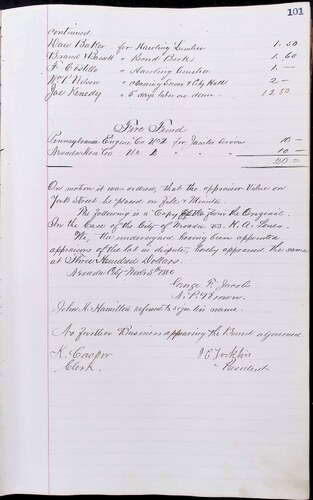 101
Continued
Dave Baker for Hauling Lumber 1.50
Brand & Bassett " Record Book 1.60
F Costello " Hauling Lumber 1.—
Wm P Wilson " Cleaning Sewer & City Hall 2—
Joe Kenedy " 5 days labor on sewer 12.50
Fire Fund
Pennsylvania Engine Co No 2 for Janitor 10—
Nevada Hose Co No 1 " 10—
20=
On motion it was ordered, that the appraisers Value on
York Street be placed on file & Minutes.
The following is a Copy of the from the Original.
In the Case of the City of Nevada vs. H. A.
We, the undersigned having been appointed
appraisers of the lot in dispute, hereby appraised the same
at Three Hundred Dollars.
Nevada City 5th 1880
George F. Jacobs
Brown
John K. Hamilton refused to sign his name.
No further Business appearing the Board adjourned.
K. Casper
Clerk.
Tecklin
President